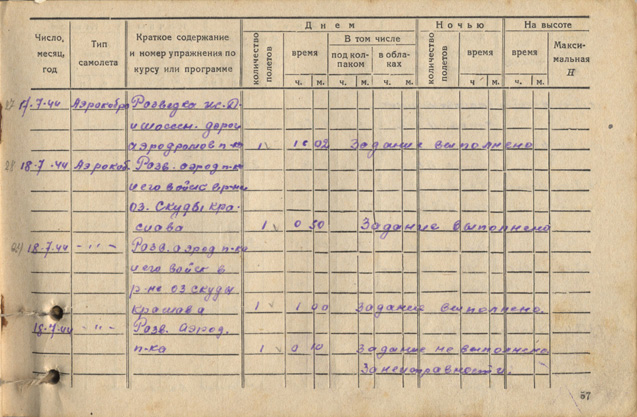 Число, месяц, год
Тип самолета
Краткое содержание и номер упражнения по курсу или программе
Д н е м
количество полетов
время
ч. м.
В том числе
под колпаком
ч. м.
в облаках
ч. м.
Н о ч ь ю
количество полетов
время
ч. м.
На высоте
время
ч. м.
Максимальная H
27 17.7.44 Аэрокобра Разведка ж.Д.
и шоссейн. дорог
аэродромов п-ка 1 1 02 Задание выполнено
28 18.7.44 Аэрокоб. Разв. аэрод п-ка
и его войск в р-не
оз. Скуды кра-
слава 1 0 50 Задание выполнено
29 18.7.44 -"- Разв. аэрод п-ка
и его войск в
р-не оз скуды
крашава 1 1 00 Задание выполнено.
18.7.44 -"- Разв. аэрод.
п-ка 1 0 10 Задание не выполнено
За неисправности.
57